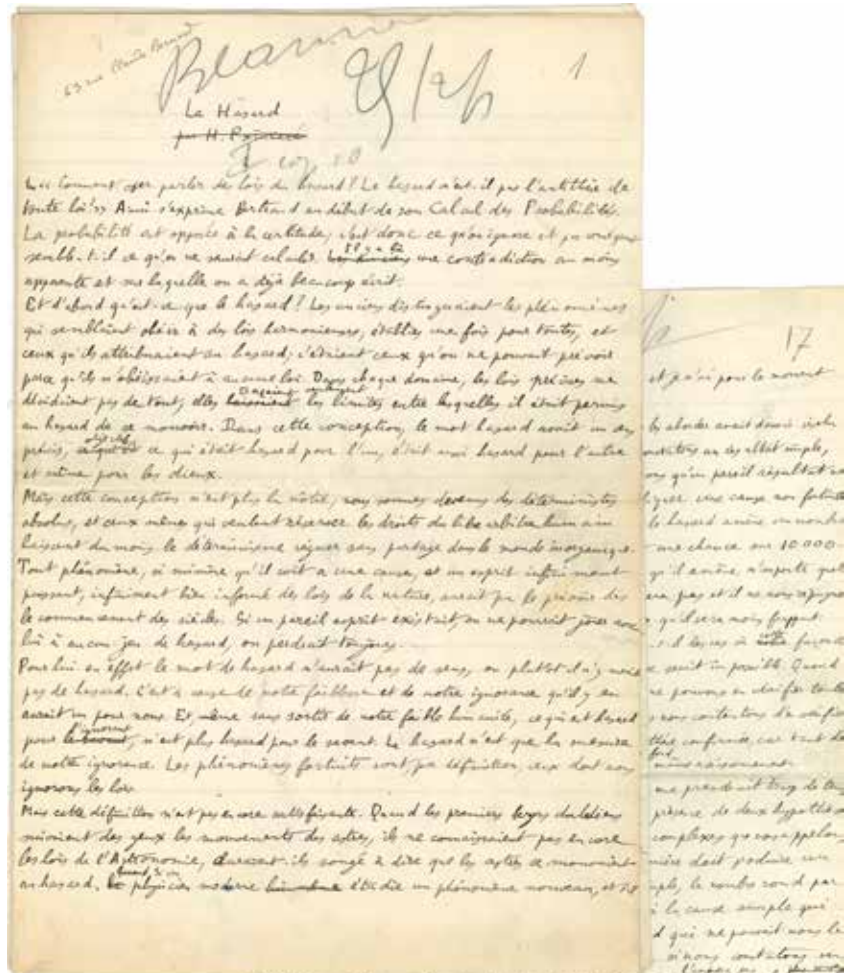 63 rue Claude Bernard
1
Le Hasard
par H. Poincaré
I
« Comment oser parler de lois du hasard? Le hasard n'est-il pas l'antithèse de
toute loi? » Ainsi s'exprime Bertrand au début de son Calcul des Probabilités.
La probabilité est opposée à la certitude; c'est donc ce qu'on ignore et par conséquent
semble-t-il ce qu'on ne saurait calculer. Il y a là une contradiction au moins
apparente et sur laquelle on a déjà beaucoup écrit.
Et d'abord qu'est-ce que le hasard? Les anciens distinguaient les phénomènes
qui semblaient obéir à des lois harmonieuses, établies une fois pour toutes, et
ceux qu'ils attribuaient au hasard; c'étaient ceux qu'on ne pouvait prévoir
parce qu'ils n'obéissaient à aucune loi. Dans chaque domaine, les lois précises ne
décidaient pas de tout, elles traçaient seulement les limites entre lesquelles il était permis
au hasard de se mouvoir. Dans cette conception, le mot hasard avait un sens
précis, objectif; ce qui était hasard pour l'un, était aussi hasard pour l'autre
et même pour les dieux.
Mais cette conception n'est plus la nôtre; nous sommes devenus des déterministes
absolus, et ceux mêmes qui veulent réserver les droits du libre arbitre humain
laissent du moins le déterminisme régner sans partage dans le monde inorganique.
Tout phénomène, si minime qu'il soit a une cause, et un esprit infiniment
puissant, infiniment bien informé des lois de la nature, aurait pu le prévoir dès
le commencement des siècles. Si un pareil esprit existait, on ne pourrait jouer avec
lui à aucun jeu de hasard, on perdrait toujours.
Pour lui en effet le mot de hasard n'aurait pas de sens, ou plutôt il n'y aurait
pas de hasard. C'est à cause de notre faiblesse et de notre ignorance qu'il y en
aurait un pour nous. Et même sans sortir de notre faible humanité, ce qui est hasard
pour l'ignorant, n'est plus hasard pour le savant. Le hasard n'est que la mesure
de notre ignorance. Les phénomènes fortuits sont, par définition, ceux dont nous
ignorons les lois.
Mais cette définition n'est pas encore satisfaisante. Quand les premiers bergers chaldéens
suivaient des yeux les mouvements des astres, ils ne connaissaient pas encore
les lois de l'Astronomie, auraient-ils songé à dire que les astres se mouvaient
au hasard. Quand un physicien moderne étudie un phénomène nouveau, et s'il
17
et j'ai pour le moment
qu'un pareil résultat
une cause non fortuite
une chance sur 10.000
qu'il amène, n'importe quel
qu'il sera moins frappé
serait impossible. Quand
ne pouvons en vérifier toutes
nous contentons de vérifier
confiance, car tant de
même raisonnement
me prendrait trop de temps
présence de deux hypothèses
complexes que nous appelons
doit produire un
le nombre rond par
la cause simple qui
qui ne pouvait nous le
si nous constatons